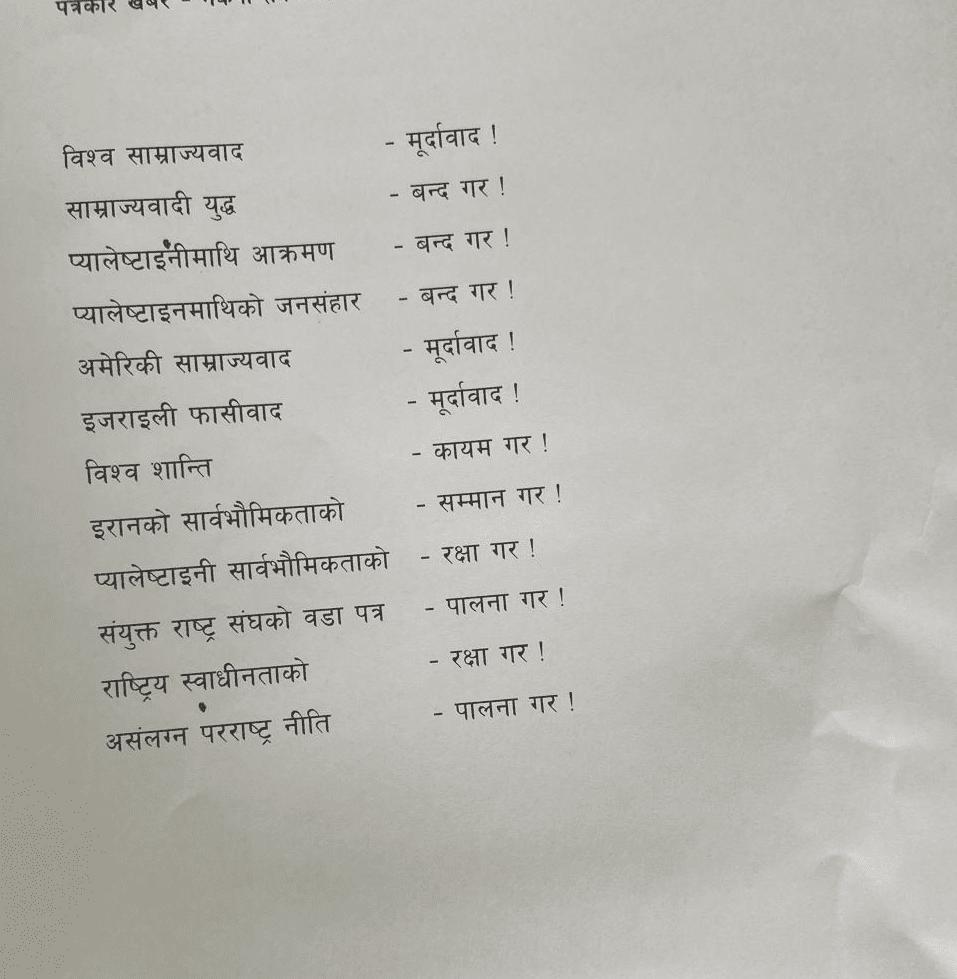 पत्रकार खबर -
विश्व साम्राज्यवाद - मूर्दावाद !
साम्राज्यवादी युद्ध - बन्द गर !
प्यालेष्टाइनीमाथि आक्रमण - बन्द गर !
प्यालेष्टाइनमाथिको जनसंहार - बन्द गर !
अमेरिकी साम्राज्यवाद - मूर्दावाद !
इजराइली फासीवाद - मूर्दावाद !
विश्व शान्ति - कायम गर !
इरानको सार्वभौमिकताको - सम्मान गर !
प्यालेष्टाइनी सार्वभौमिकताको - रक्षा गर !
संयुक्त राष्ट्र संघको वडा पत्र - पालना गर !
राष्ट्रिय स्वाधीनताको - रक्षा गर !
असंलग्न परराष्ट्र नीति - पालना गर !